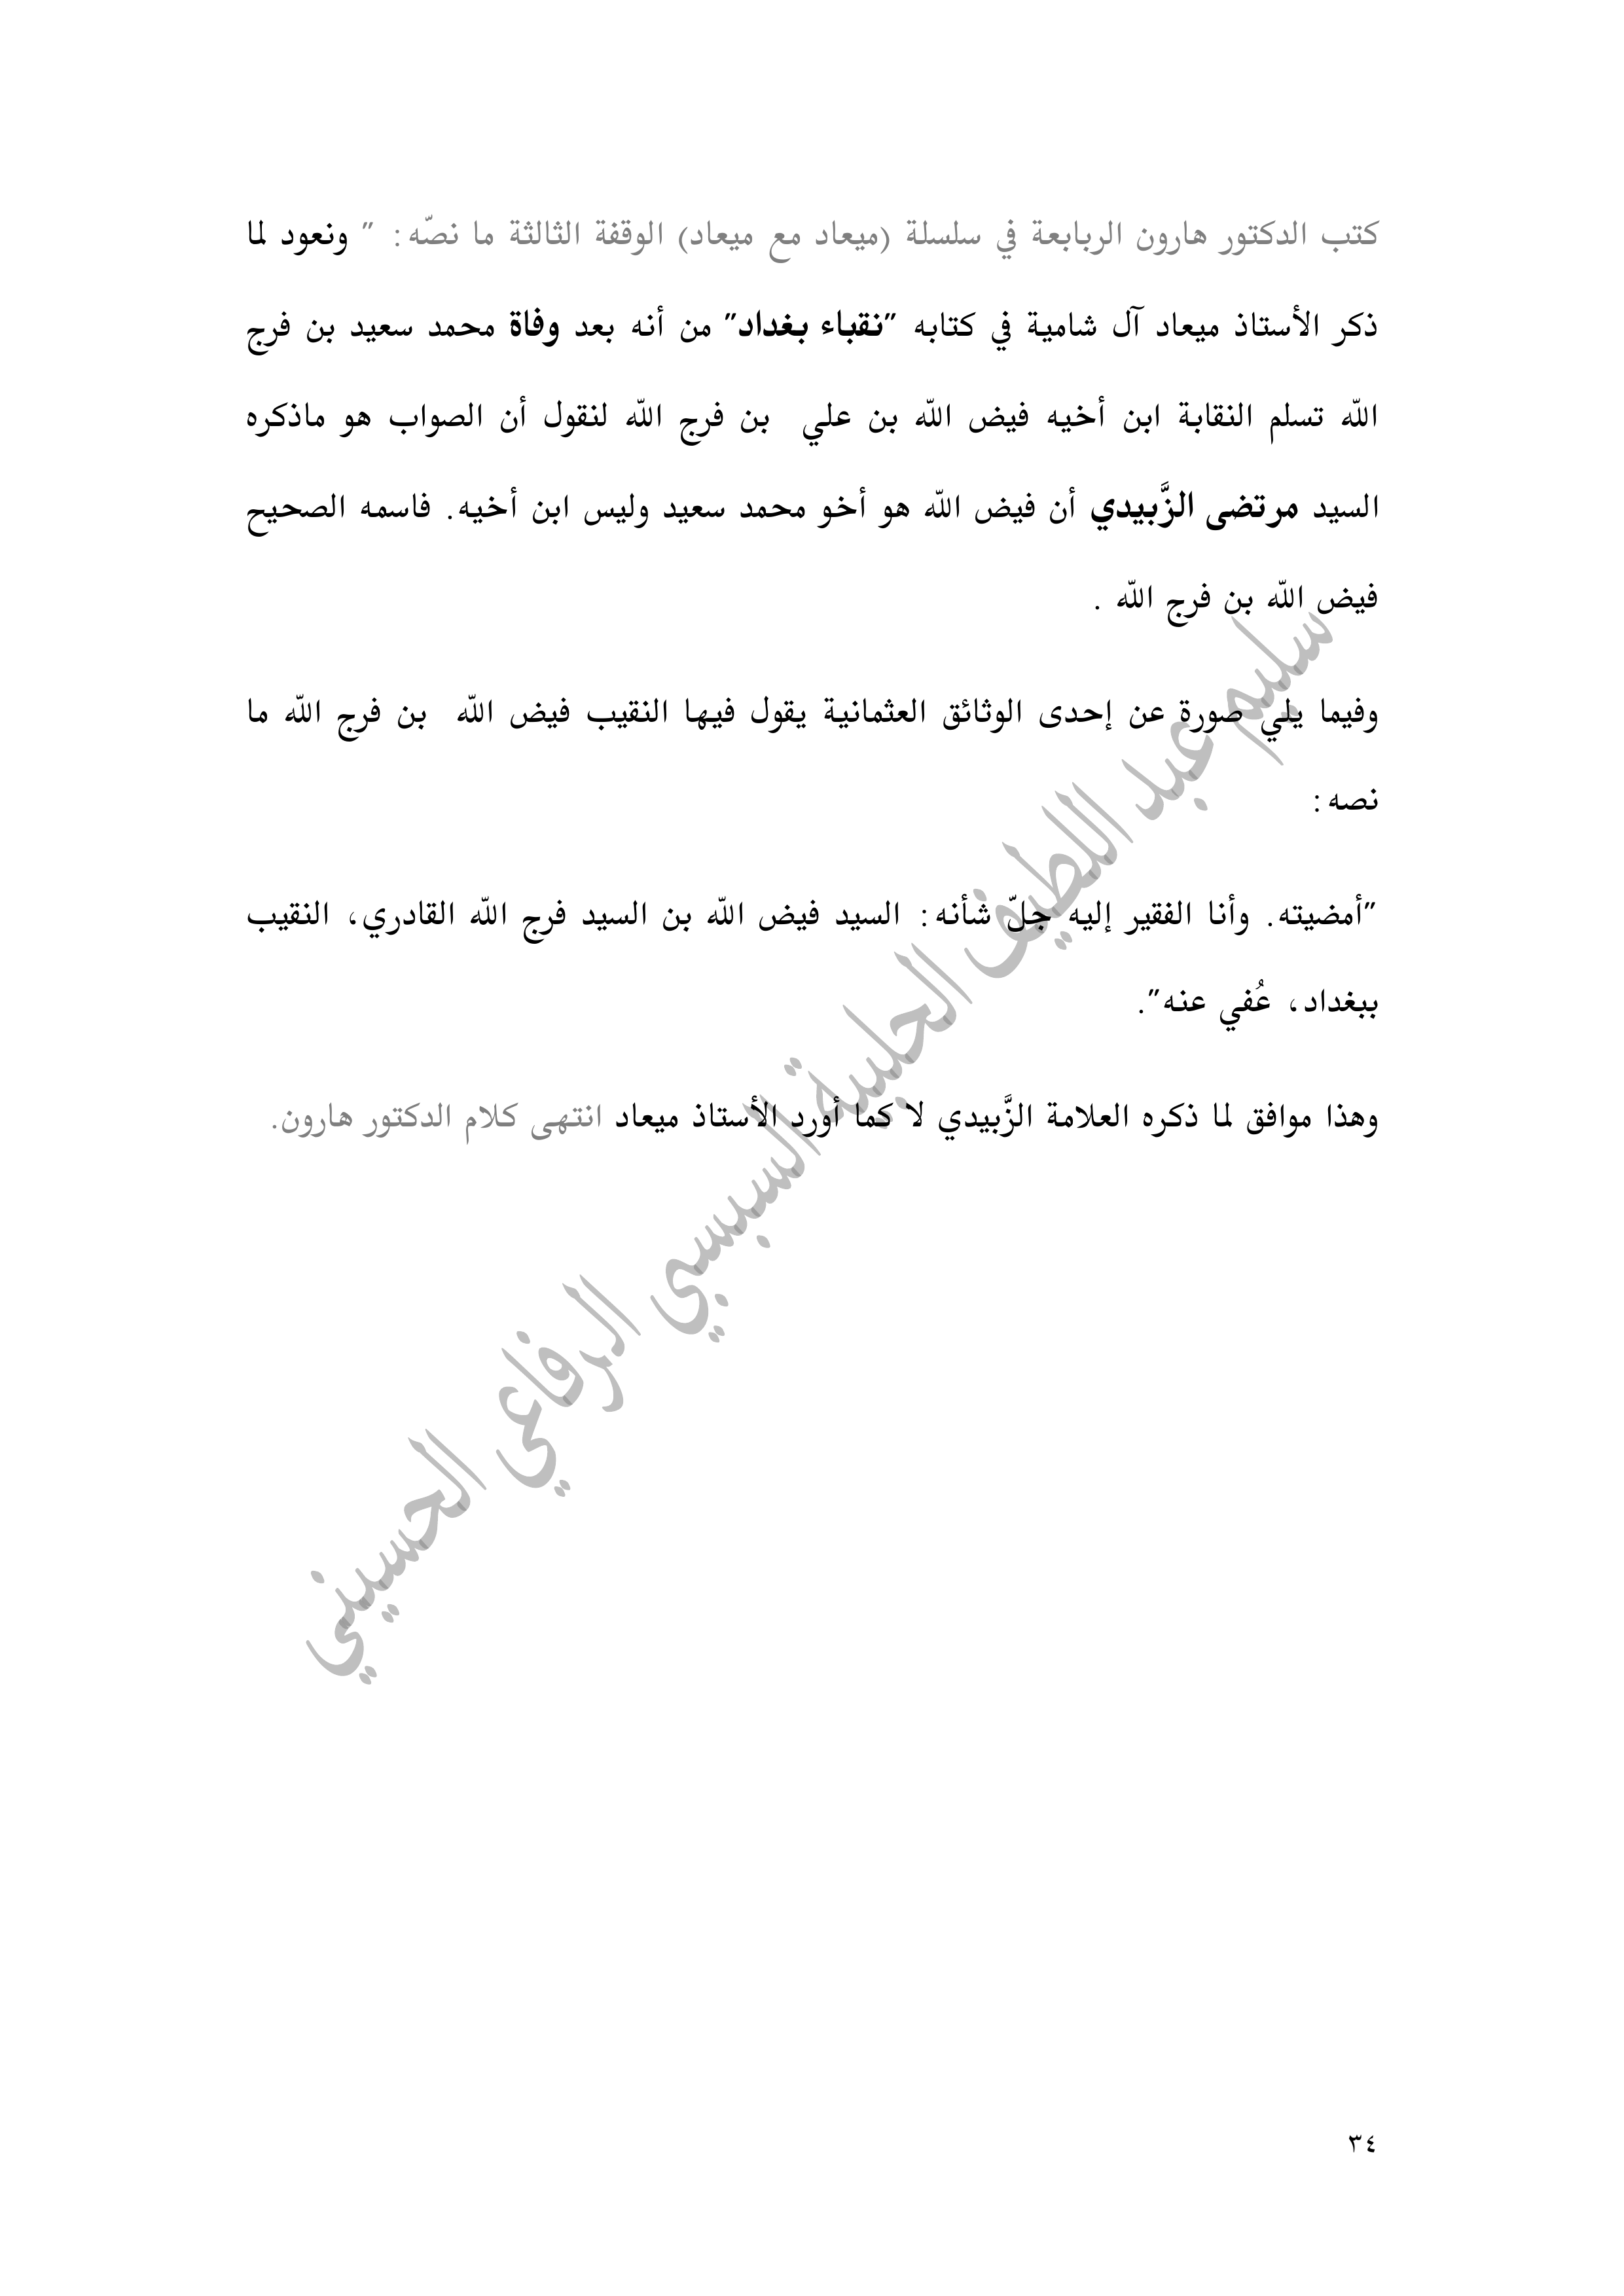 كتب الدكتور هارون الربابعة في سلسلة (ميعاد مع ميعاد) الوقفة الثالثة ما نصّه: " ونعود لما
ذكر الأستاذ ميعاد آل شامية في كتابه "نقباء بغداد" من أنه بعد وفاة محمد سعيد بن فرج
الله تسلم النقابة ابن أخيه فيض الله بن علي بن فرج الله لنقول أن الصواب هو ماذكره
السيد مرتضى الزَّبيدي أن فيض الله هو أخو محمد سعيد وليس ابن أخيه. فاسمه الصحيح
فيض الله بن فرج الله .
وفيما يلي صورة عن إحدى الوثائق العثمانية يقول فيها النقيب فيض الله بن فرج الله ما
نصه:
"أمضيته. وأنا الفقير إليه جلّ شأنه: السيد فيض الله بن السيد فرج الله القادري، النقيب
ببغداد، عُفي عنه".
وهذا موافق لما ذكره العلامة الزَّبيدي لا كما أورد الأستاذ ميعاد انتهى كلام الدكتور هارون.
سليم عبد اللطيف الحلبية السبسبي الرفاعي الحسيني
٣٤